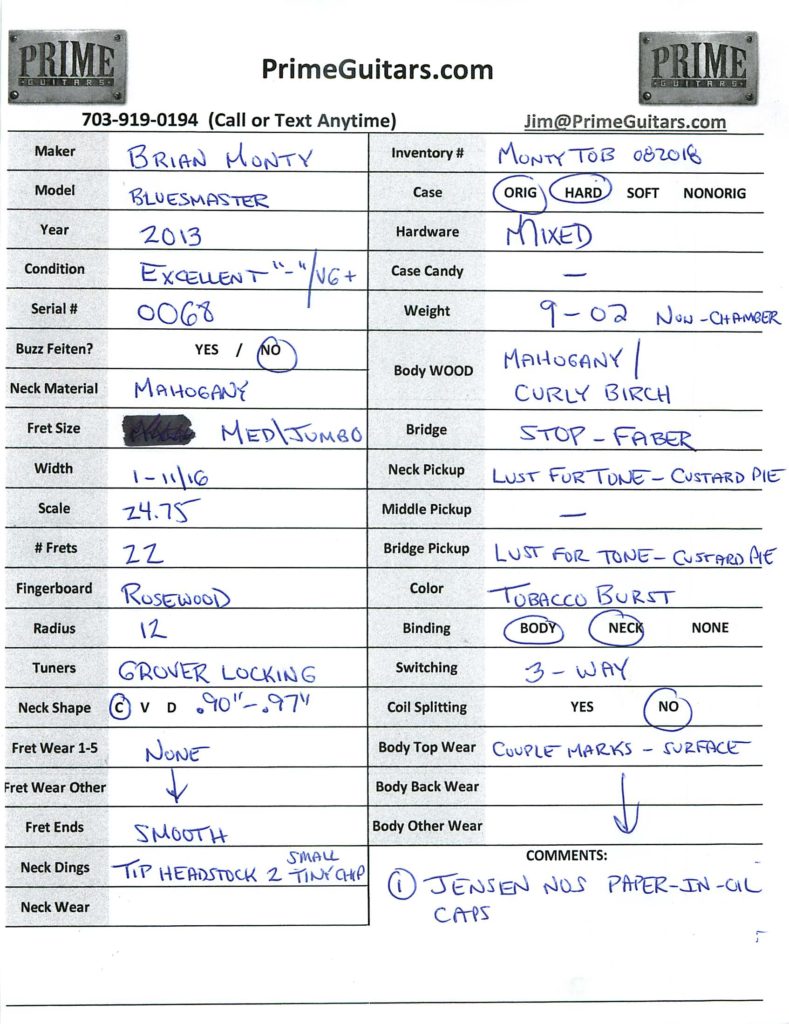 PRIME
GUITARS
PrimeGuitars.com
PRIME
GUITARS
703-919-0194 (Call or Text Anytime)
Jim@PrimeGuitars.com
Maker BRIAN MONTY
Model BLUESMASTER
Year 2013
Condition EXCELLENT "-"/VG+
Serial # 0068
Buzz Feiten? YES / NO
Neck Material MAHOGANY
Fret Size MED\JUMBO
Width 1-11/16
Scale 24.75
# Frets 22
Fingerboard ROSEWOOD
Radius 12
Tuners GROVER LOCKING
Neck Shape C V D .90"-.97"
Fret Wear 1-5 NONE
Fret Wear Other ↓
Fret Ends SMOOTH
Neck Dings TIP HEADSTOCK 2 SMALL TINY CHIP
Neck Wear
Inventory # MONTY TOB 082018
Case ORIG HARD SOFT NONORIG
Hardware MIXED
Case Candy —
Weight 9-02 NON-CHAMBER
Body WOOD MAHOGANY /
CURLY BIRCH
Bridge STOP-FABER
Neck Pickup LUST FOR TONE - CUSTARD PIE
Middle Pickup —
Bridge Pickup LUST FOR TONE - CUSTARD PIE
Color TOBACCO BURST
Binding BODY NECK NONE
Switching 3-WAY
Coil Splitting YES NO
Body Top Wear COUPLE MARKS - SURFACE
Body Back Wear ↓
Body Other Wear
COMMENTS:
① JENSEN NOS PAPER-IN-OIL
CAPS